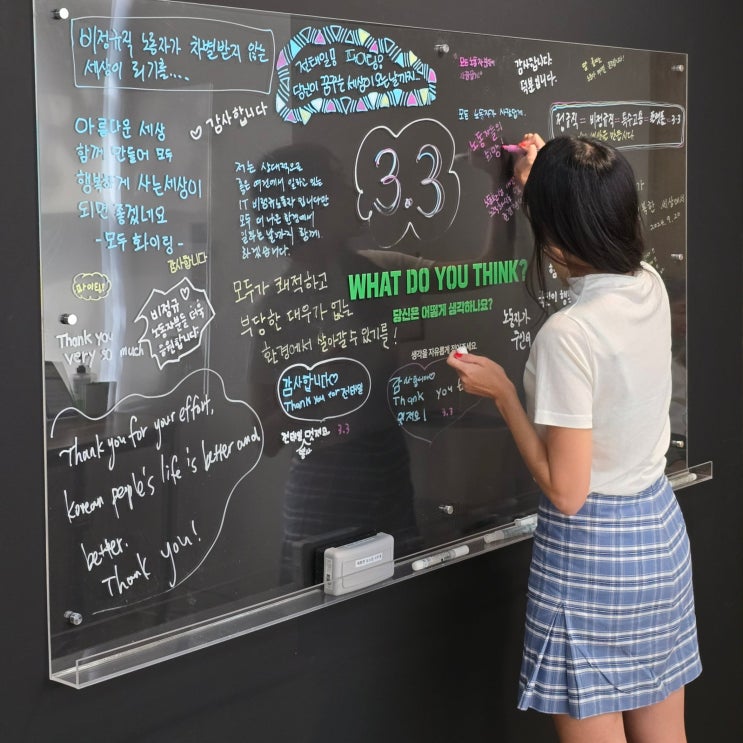 비정규직 노동자가 차별받지 않는
세상이 되기를....
전태일
당신이 꿈꾸는 세상이 오는 날까지
♡ 감사합니다
아름다운 세상
함께 만들어 모두
행복하게 사는세상이
되면 좋겠네요
- 모두 화이팅 -
감사합니다
파이팅!
비정규
노동자분들 더욱
응원합니다
Thank you
very so much
저는 상대적으로
좋은 여건에서 일하고 있는
IT 비정규노동자 입니다만
모두 더 나은 환경에서
일하는 날까지 함께
하겠습니다.
모두가 쾌적하고
부당한 대우가 없는
환경에서 살아갈 수 있기를!
감사합니다♡
Thank you for 전태일
전태일 멋져요 3.3
감사합니다
Thank you
멋져요! 3.3
Thank you for your effort,
korean people's life is better and
better.
Thank you!
3.3
WHAT DO YOU THINK?
당신은 어떻게 생각하나요?
생각을 자유롭게
감사합니다.
덕분입니다.
노동자들의
희망
정규직 = 비정규직 = 특수고용 = = 3.3
세상에서
노동자가
주인